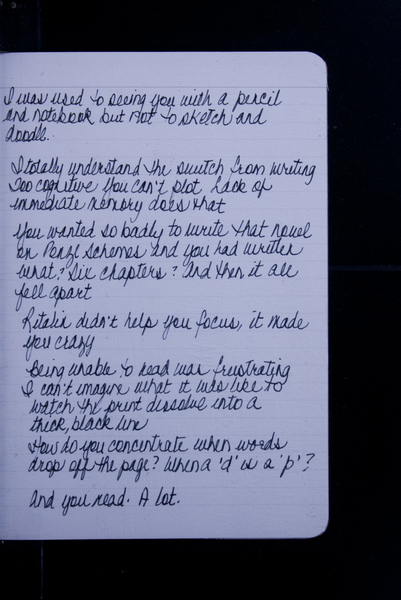 I was used to seeing you with a pencil
and notebook but not to sketch and
doodle.
I totally understand the switch from writing
Too cognitive You can't plot Lack of
immediate memory does that
You wanted so badly to write that novel
on Ponzi schemes and you had written
what? Six chapters? And then it all
fell apart
Ritalin didn't help you focus, it made
you crazy
Being unable to read was frustrating
I can't imagine what it was like to
watch the print dissolve into a
thick, black line
How do you concentrate when words
drop off the page? When a 'd' is a 'p'?
And you read. A lot.